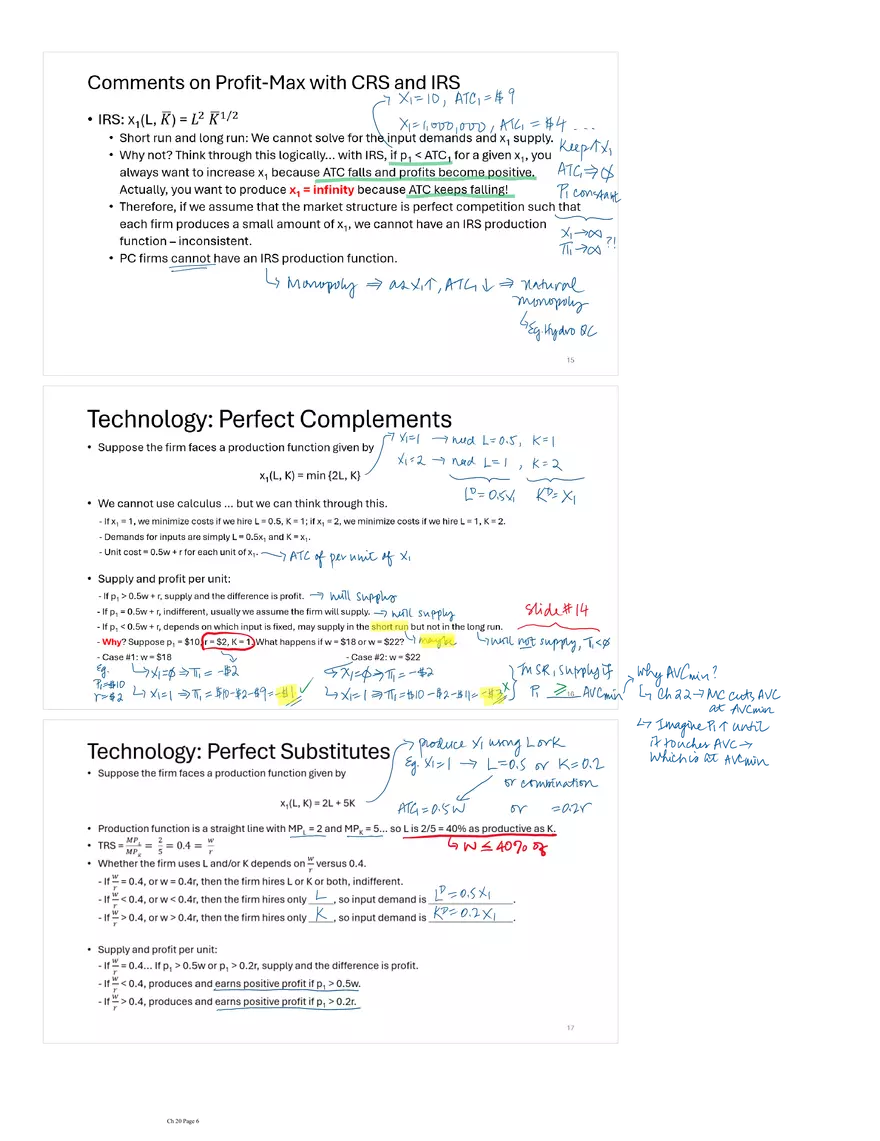 Comments on Profit-Max with CRS and IRS
X₁=10, ATC₁=$9
• IRS: x₁(L, K̅) = L² K̅^1/2
X₁=1,000,000, ATC₁ = $4 ...
• Short run and long run: We cannot solve for the input demands and x₁ supply.
• Why not? Think through this logically... with IRS, if p₁ < ATC₁ for a given x₁, you
always want to increase x₁ because ATC falls and profits become positive.
Actually, you want to produce x₁ = infinity because ATC keeps falling!
Keep↑X₁
ATC₁⇒0
P₁ constant
• Therefore, if we assume that the market structure is perfect competition such that
each firm produces a small amount of x₁, we cannot have an IRS production
function – inconsistent.
X₁→∞
π₁→∞ ?!
• PC firms cannot have an IRS production function.
↳ Monopoly ⇒ as X₁↑, ATC₁↓ ⇒ natural
monopoly
↳ Eg. Hydro QC
15
Technology: Perfect Complements
• Suppose the firm faces a production function given by
X₁=1 → need L=0.5, K=1
X₁=2 → need L=1, K=2
x₁(L, K) = min {2L, K}
Lᴰ=0.5X₁ Kᴰ=X₁
• We cannot use calculus ... but we can think through this.
- If x₁ = 1, we minimize costs if we hire L = 0.5, K = 1; if x₁ = 2, we minimize costs if we hire L = 1, K = 2.
- Demands for inputs are simply L = 0.5x₁ and K = x₁.
- Unit cost = 0.5w + r for each unit of x₁. → ATC of per unit of X₁
• Supply and profit per unit:
- If p₁ > 0.5w + r, supply and the difference is profit. → will supply
- If p₁ = 0.5w + r, indifferent, usually we assume the firm will supply. → will supply
Slide #14
- If p₁ < 0.5w + r, depends on which input is fixed, may supply in the short run but not in the long run.
↳ maybe ↳ will not supply, π₁<0
- Why? Suppose p₁ = $10, r = $2, K = 1. What happens if w = $18 or w = $22?
- Case #1: w = $18 - Case #2: w = $22
Eg.
P₁=$10
r=$2
↳ X₁=0 ⇒ π₁ = -$2
↳ X₁=1 ⇒ π₁ = $10-$2-$9 = -$1 ✓
↳ X₁=0 ⇒ π₁ = -$2
↳ X₁=1 ⇒ π₁ = $10-$2-$11 = -$3 ×
In SR, supply if
P₁ ≥ AVCmin
16
Why AVCmin?
↳ Ch 22 → MC cuts AVC
at AVCmin
↳ Imagine P₁↑ until
it touches AVC →
which is at AVCmin
Technology: Perfect Substitutes
→ produce X₁ using L or K
• Suppose the firm faces a production function given by
Eg. X₁=1 → L=0.5 or K=0.2
or combination
x₁(L, K) = 2L + 5K
ATC₁=0.5w or =0.2r
• Production function is a straight line with MP_L = 2 and MP_K = 5... so L is 2/5 = 40% as productive as K.
↳ w ≤ 40% of
• TRS = MP_L/MP_K = 2/5 = 0.4 = w/r
• Whether the firm uses L and/or K depends on w/r versus 0.4.
- If w/r = 0.4, or w = 0.4r, then the firm hires L or K or both, indifferent.
- If w/r < 0.4, or w < 0.4r, then the firm hires only L, so input demand is Lᴰ=0.5X₁.
- If w/r > 0.4, or w > 0.4r, then the firm hires only K, so input demand is Kᴰ=0.2X₁.
• Supply and profit per unit:
- If w/r = 0.4... If p₁ > 0.5w or p₁ > 0.2r, supply and the difference is profit.
- If w/r < 0.4, produces and earns positive profit if p₁ > 0.5w.
- If w/r > 0.4, produces and earns positive profit if p₁ > 0.2r.
17
Ch 20 Page 6